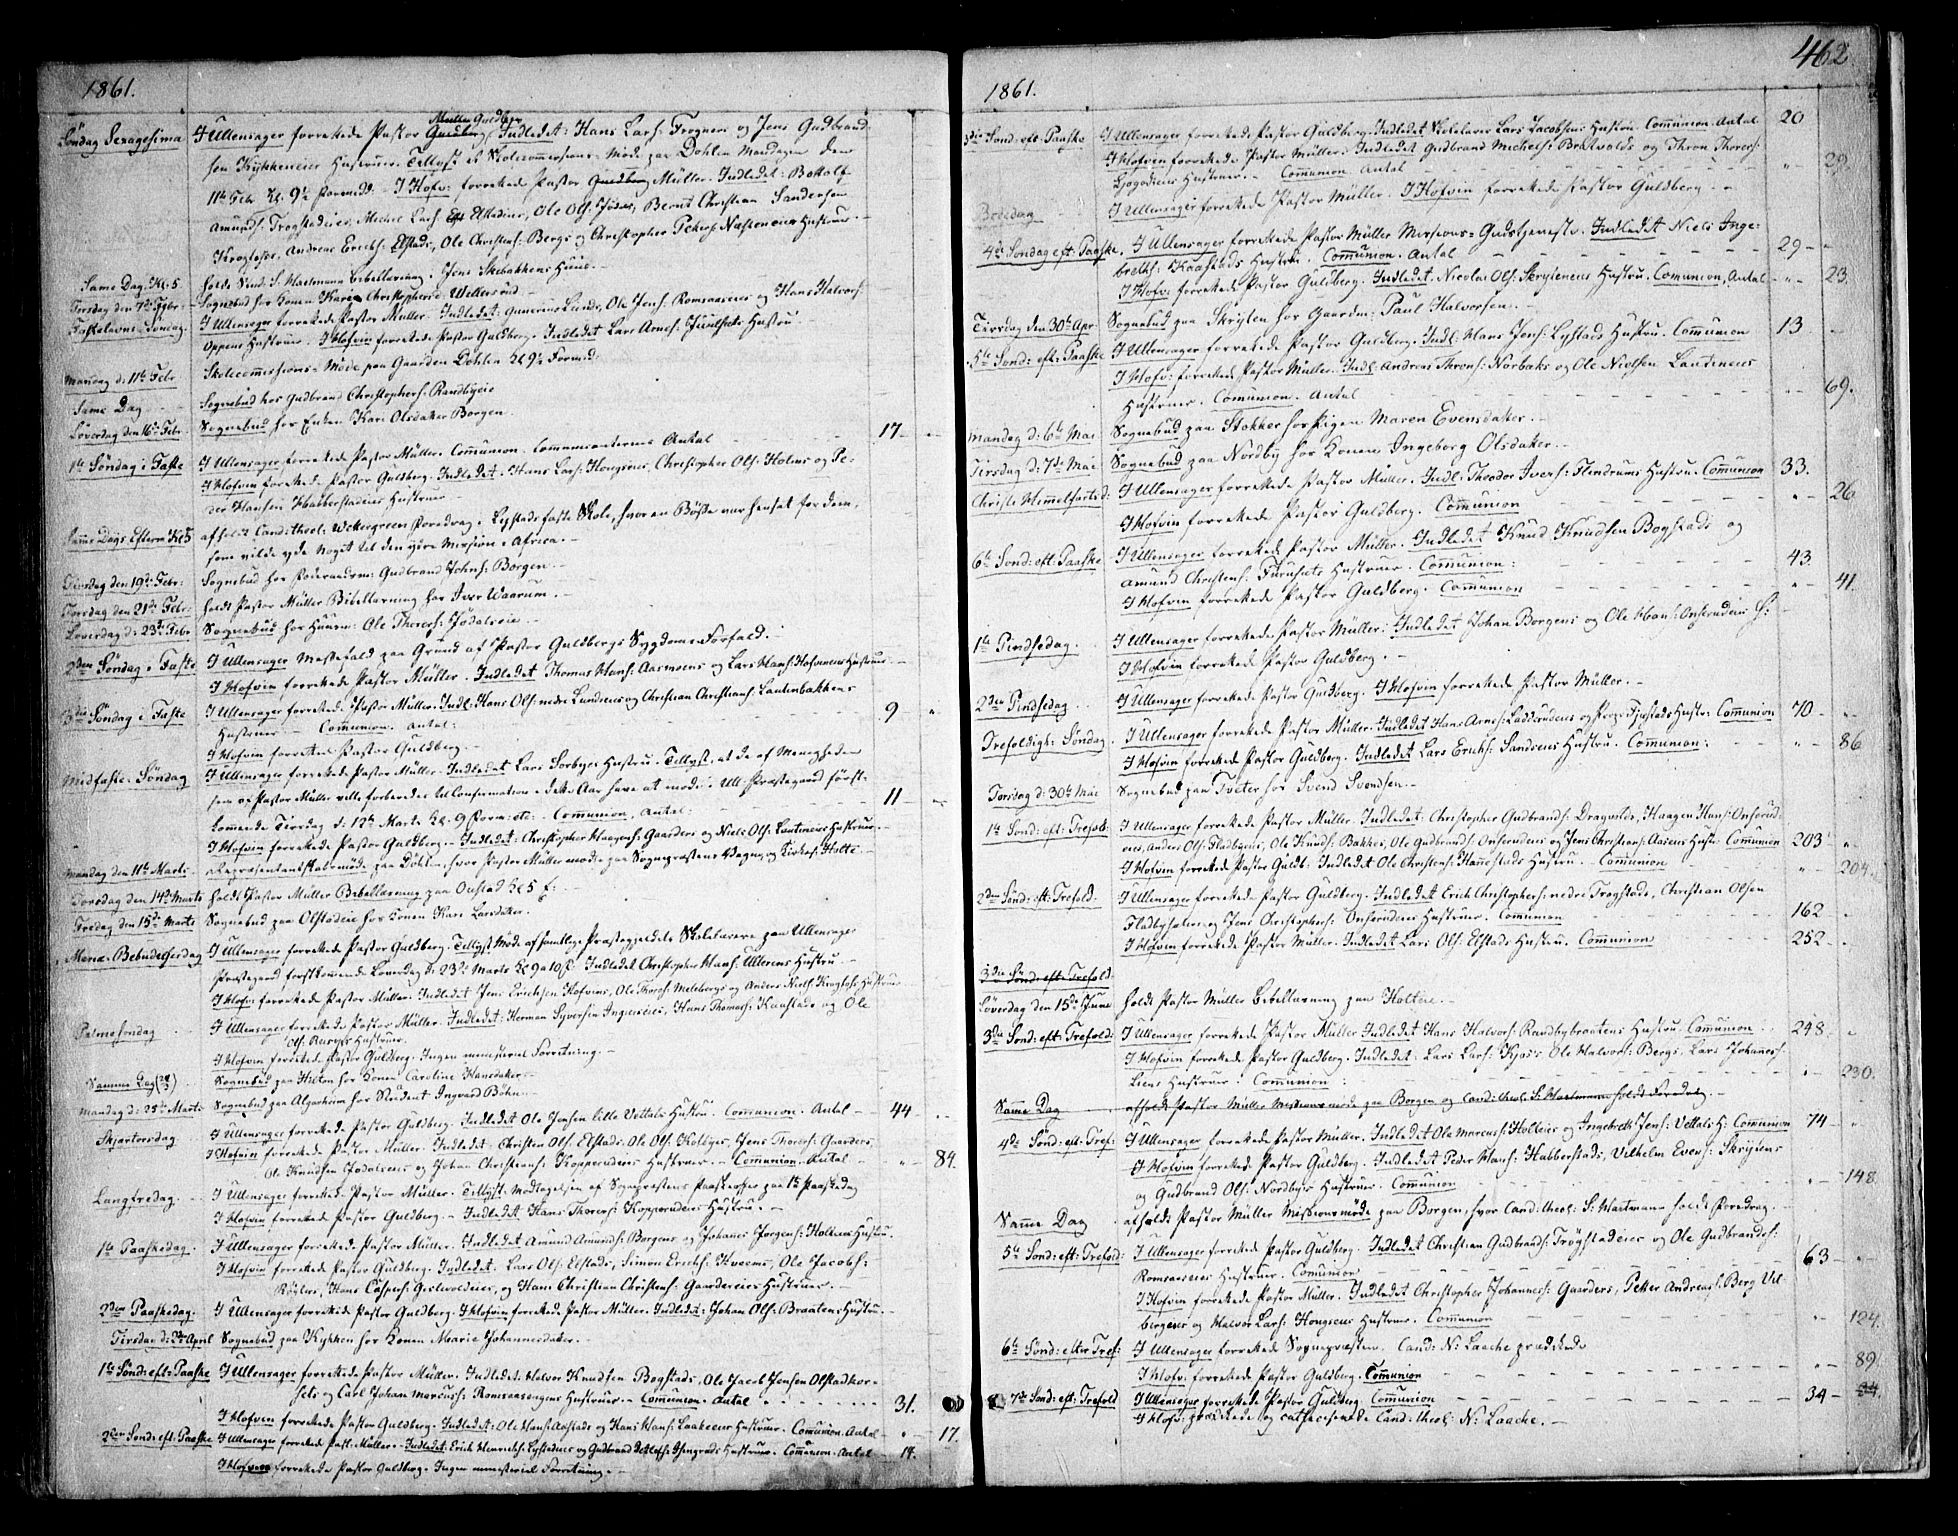 1861.
Søndag Sexagesima I Ullensager forrettede Pastor Guldberg Müller Guldberg. Indledet: Hans Lars: Frogner og Jens Gudbrand
sen Kykkeneier Hustruer. Tillyst et Skolecommissions-Møde paa Dohlen Mandagen den
11te Febr Kl. 9½ Formidd. I Hofv: forrettede Pastor Guldberg Müller. Indledet: Bottolf
Amunds: Trogstadeier, Michel Lars: Elstadeier, Ole Ols: Jødal, Bernt Christian Sandersen
Krogfoss, Andreas Erichs: Elstads, Ole Christens: Bergs og Christopher Peters: Næsteneier Hustruer.
Same Dag Kl. 5 holdt Cand: S. Wartmann Bibellæsning i Jens Skebakkens Huus.
Torsdag den 7de Febr: Sognebud hos Konen Karie Christophersd: Wellersrud
Fastelavns-Søndag I Ullensager forrettede Pastor Müller. Indledet: Gunerius Lunds, Ole Jens: Romsaaseies og Hans Halvors:
Oppens Hustruer. I Hofvin forrettede Pastor Guldberg. Indledet Lars Arnes: Juulsets Hustru
Mandag d: 11te Febr Skolecommissions-Møde paa Gaarden Dohlen Kl 9½ Formid:
Same Dag Sognebud hos Gudbrand Christophers: Randbyeie
Løverdag den 16de Febr Sognebud hos Enken Kari Olsdatter Borgen.
1ste Søndag i Faste I Ullensager forrettede Pastor Müller. Communion. Communicanternes Antal 17
I Hofvin forrettede Pastor Guldberg. Indledet: Hans Lars: Hongseies, Christopher Ols: Holms og Pe-
der Hansen Habberstadeies Hustruer
Samme Dags Efterm Kl 5 afholdt Cand: theol: Wettergreen Foredrag i Lystads faste Skole, hvor en Bøsse var hensat for dem,
som vilde yde Noget til den ydre Mission i Africa.
Tirsdag den 19de Febr: Sognebud hos Føderaadsm: Gudbrand Johns: Borgen.
Torsdag den 21de Febr: holdt Pastor Müller Bibellæsning hos Iver Waarum.
Løverdag d: 23de Febr Sognebud hos Huusm: Ole Thores: Jødalseie.
2den Søndag i Faste I Ullensager Messefald paa Grund af Pastor Guldbergs Sygdoms Forfald.
I Hofvin forrettede Pastor Müller. Indledet Thomas Hans: Aasmoens og Lars Hans: Hofvineies Hustruer
3die Søndag i Faste I Ullensager forrettede Pastor Müller. Indl: Hans Ols: nedre Lundeies og Christian Christians: Lautenbakkens
Hustruer. Communion. Antal: 9
I Hofvin forrettede Pastor Guldberg.
Midfaste-Søndag I Ullensager forrettede Pastor Müller. Indledet Lars Sørbyes Hustru. Tillyst, at de af Menigheden
som af Pastor Müller ville forberedes til Confirmation i dette Aar have at møde i Ull: Præstegaard først-
kommende Tirsdag d: 12te Marts Kl: 9 Form: etc: Communion, Antal. 11
I Hofvin forrettede Pastor Guldberg. Indledet: Christopher Haagens: Gaarders og Niels Ols: Lauteneies Hustruer.
Mandag den 11te Marts Repræsentantskabsmøde paa Dohlen, hvor Pastor Müller mødte paa Sognepræstens Vegne, og Kirkes: Holte.
Torsdag den 14de Marts holdt Pastor Müller Bibellæsning paa Onstad Kl 5 E:
Fredag den 15de Marts Sognebud paa Olstadeie hos Konen Kari Larsdatter.
Mariæ-Bebudelsesdag I Ullensager forrettede Pastor Guldberg. Tillyst Møde af samtlige Præstegjeldets Skolelærere paa Ullensager
Præstegaard førstkommende Løverdag d: 23de Marts Kl 9 a 10 F: Indledet Christopher Hans: Ullereies Hustru.
I Hofv: forrettede Pastor Müller. Indledet Jens Erichsen Hofvins, Ole Thores: Melebergs og Anders Niels: Krogfoss Hustruer
Palmesøndag I Ullensager forrettede Pastor Müller. Indledet: Herman Syversen Ingiereies, Hans Thomas: Kaastads og Ole
Ols: Aurseies Hustruer.
I Hofvin forrettede Pastor Guldberg. Ingen ministeriel Forretning.
Samme Dag (24/3) Sognebud paa Hilton hos Konen Caroline Hansdatter
Mandag d: 25de Marts Sognebud paa Algarheim hos Student Ingvard Bøhn.
Skjærtorsdag I Ullensager forrettede Pastor Guldberg. Indledet Ole Jensen lille Vettals Hustru. Communion. Antal 44
I Hofvin forrettede Pastor Müller. Indledet: Christen Ols: Elstads, Ole Ols: Kolbyes, Jens Thores: Gaarders,
Ole Knudsen Jødalseies og Johan Christians: Kopperudeies Hustruer. Communion. Antal 84.
Langfredag. I Ullensager forrettede Pastor Müller. Tillyst Modtagelsen af Sognepræstens Paaskeoffer paa 1ste Paaskedag
I Hofvin forrettede Pastor Guldberg. Indledet Hans Thores: Kopperudeies Hustru.
1ste Paaskedag. I Ullensager forrettede Pastor Müller. Indledet Amund Amunds: Borgens og Johanes Jørgens: Holteies Hustru
I Hofvin forrettede Pastor Guldberg. Indledet: Lars Ols: Elstads, Simon Erichs: Kveems, Ole Jacobs:
Røglers, Hans Caspers: Gislevoldeies, og Hans Christian Christens: Gaardereies Hustruer.
2den Paaskedag. I Ullensager forrettede Pastor Guldberg. I Hofvin forrettede Pastor Müller. Indledet: Johan Ols: Braatens Hustru.
Tirsdag d: 2den April Sognebud paa Kykken hos Konen Marie Johannesdatter.
1ste Sønd: eft: Paaske I Ullensager forrettede Pastor Müller. Indledet Halvor Knudsen Bogstads, Ole Jacob Jensen Olstadkor-
sets og Carl Johan Marcus: Romsaasengens Hustruer. Communion. Antal 31.
I Hofvin forrettede Pastor Guldberg. Indledet: Ole Hans: Aalstads og Hans Hans: Laakeeies Hustruer. Communion. Antal 17.
2den Sønd: eft: Paaske I Ullensager forrettede Past: Müller. Indledet: Erich Henrichs: Lystadeies og Gudbrand Detlefs: Jsengrads Hustruer. Communion. Antal 14.
I Hofvin forrettede Pastor Guldberg. Ingen ministeriel Forretning.
462
1861.
3die Sønd: eft: Paaske I Ullensager forrettede Pastor Guldberg. Indledet Skolelærer Lars Jacobsens Hustru. Communion. Antal 20
I Hofvin forrettede Pastor Müller. Indledet Gudbrand Michels: Brotvolds og Thron Thores:
Ljøgodeies Hustruer. Communion Antal 29
Bededag I Ullensager forrettede Pastor Müller. I Hofvin forrettede Pastor Guldberg.
4de Søndag eft: Paaske. I Ullensager forrettede Pastor Müller Missions-Gudstjeneste. Indledet Niels Inge-
breths: Kaastads Hustru. Communion. Antal 29
I Hofv: forrettede Pastor Guldberg. Indledet: Nicolai Ols: Skryteneies Hustru. Comunion, Antal 23.
Tirsdag den 30te Apr Sognebud paa Skryten hos Gaardm: Paul Halvorsen.
5te Sønd: eft: Paaske I Ullensager forrettede Pastor Guldberg. Indl: Hans Jens: Lystads Hustru. Communion 13
I Hofv: forrettede Pastor Müller. Indl: Andreas Throns: Norbaks og Ole Nielsen Lauteneies
Hustruer. Comunion. Antal 69.
Mandag d: 6te Mai Sognebud paa Stokker hos Pigen Maren Evensdatter.
Tirsdag d: 7de Mai Sognebud paa Nordby hos Konen Ingeborg Olsdatter.
Christi Himmelfartsd: I Ullensager forrettede Pastor Müller. Indl: Theodor Ivers: Flendrums Hustru. Comunion 33.
I Hofvin forrettede Pastor Guldberg. Communion 26
6te Sønd: eft: Paaske I Ullensager forrettede Pastor Müller. Indledet Knud Knudsen Bogstads og
Amund Christens: Furusets Hustruer. Communion: 43.
I Hofvin forrettede Pastor Guldberg. Communion 41.
1ste Pindsedag. I Ullensager forrettede Pastor Müller. Indledet Johan Borgens og Ole Hans: Onsrudeies H:
I Hofvin forrettede Pastor Guldberg.
2den Pindsedag I Ullensager forrettede Pastor Guldberg. I Hofvin forrettede Pastor Müller.
Trefoldigh: Søndag. I Ullensager forrettede Pastor Müller. Indledet Hans Arnes: Ladderudeies og Fjestads Hustr: Comunion 70
I Hofvin forrettede Pastor Guldberg. Indledet Lars Erichs: Sandeies Hustru. Comunion: 86
Torsdag d: 30te Mai Sognebud paa Tveter hos Svend Svendsen.
1ste Sønd: eft: Trefold: I Ullensager forrettede Pastor Müller. Indledet: Christopher Gudbrands: Dragvolds, Haagen Hans: Onsrud-
eies, Anders Ols: Fladbyeies, Ole Knuds: Bakkes, Ole Gudbrands: Onsrudeies og Jens Christians: Aaseies Hustr. Comunion 203
I Hofvin forrettede Pastor Guldb: Indledet Ole Christens: Hannestads Hustru. Comunion 204.
2den Sønd: eft: Trefold. I Ullensager forrettede Pastor Guldberg. Indledet Erich Christophers: nedre Trogstads, Christian Olsen
Fladbyholen og Jens Christophers: Onsrudeies Hustruer. Comunion 162
I Hofvin forrettede Pastor Müller. Indledet Lars Ols: Elstads Hustru. Communion 252
3die Sønd: eft: Trefold:
Løverdag den 15de Juni holdt Pastor Müller Bibellæsning paa Holteie.
3die Sønd: eft: Trefold: I Ullensager forrettede Pastor Müller Indledet Hans Halvors: Randbybraatens Hustru. Comunion 248.
I Hofvin forrettede Pastor Guldberg. Indledet: Lars Lars: Kjøs: Ole Halvors: Bergs, Lars Johanes:
Liens Hustruer. Comunion: 230.
Samme Dag afholdt Pastor Müller Missionsmøde paa Borgen og Cand: theol: S: Wartmann holdt Foredrag.
4de Sønd: eft: Tref: I Ullensager forrettede Pastor Müller. Indledet Ole Marcus: Holteies og Ingebreth Jens: Vettals H: Comunion 74
I Hofvin forrettede Pastor Guldberg. Indledet Peder Hans: Habberstads, Vilhelm Evens: Skrytens
og Gudbrand Ols: Nordbyes Hustruer. Comunion 148
Samme Dag afholdt Pastor Müller Missionsmøde paa Borgen, hvor Cand: theol: S: Wartmann holdt Foredrag.
5te Sønd: eft: Trefold: I Ullensager forrettede Pastor Guldberg. Indledet Christian Gudbrands: Trøgstadeies og Ole Gudbrands:
Romsaaseies Hustruer. Comunion 63
I Hofvin forrettede Pastor Müller. Indledet Christopher Johannes: Gaarders, Petter Andreas: Berg Vil-
bergeie og Halvor Lars: Hongseies Hustruer. Comunion 124.
6te Sønd: efter Tref: I Ullensager forrettede Sognepræsten. Cand: N: Laache prædikede
I Hofv: forrettede Pastor Guldberg. Comunion 89
7de Sønd: eft: Trefold I Ullensager forrettede Pastor Guldberg Comunion 34 34.
I Hofv: prædikede og catheciserede Cand: theol: N: Laache.